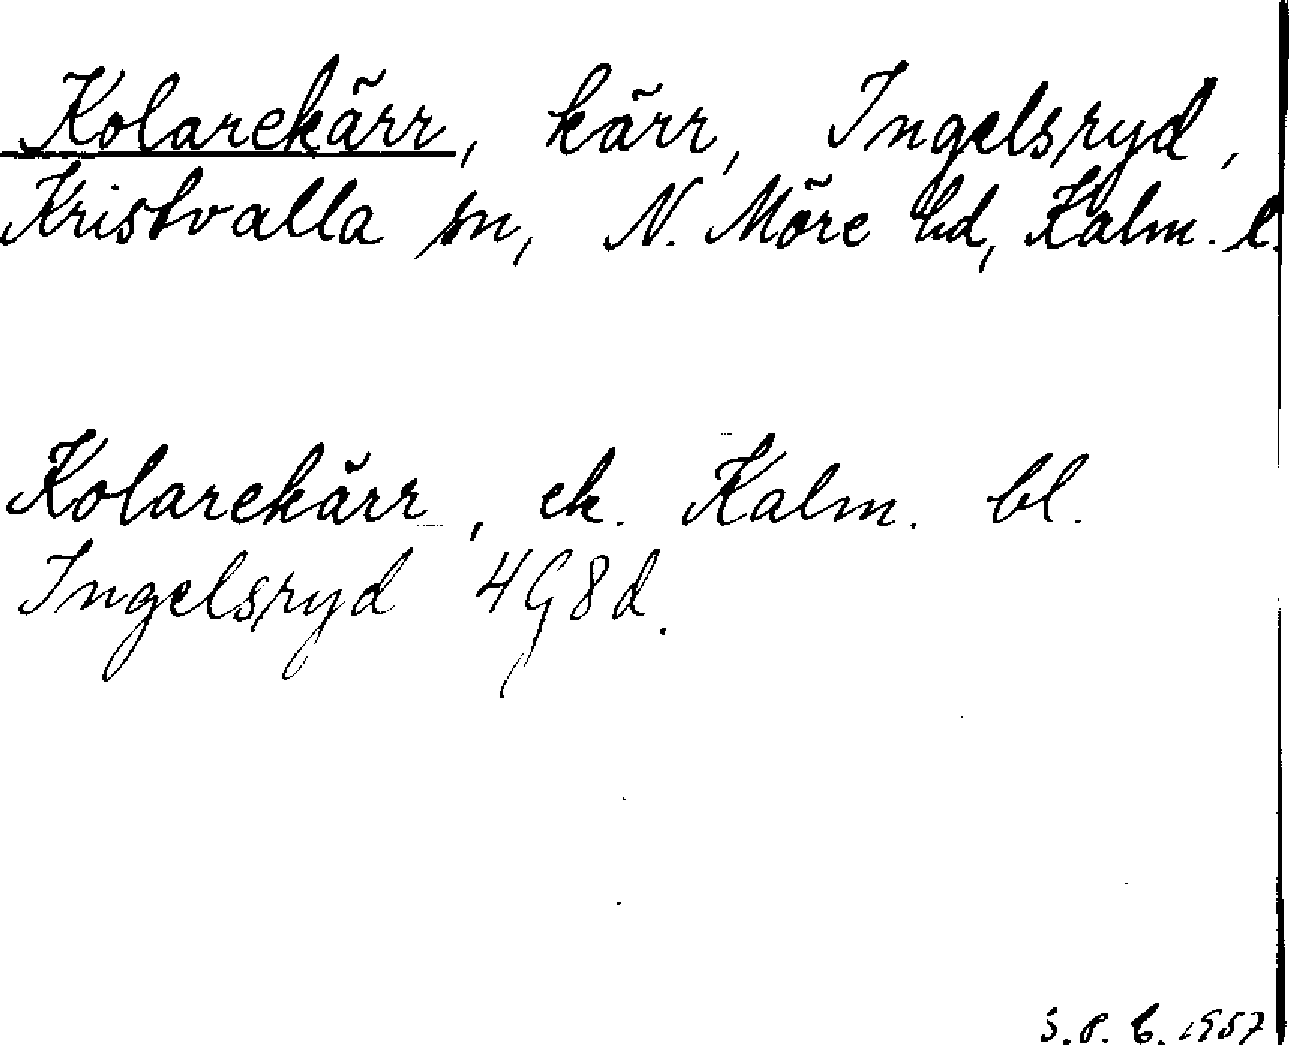 Kolarekärr, kärr, Ingelsryd,
Kristvalla sn, N. Möre hd, Kalm. l.
Kolarekärr, ek. Kalm. bl.
Ingelsryd 4G8d.
S.P.B. 1957